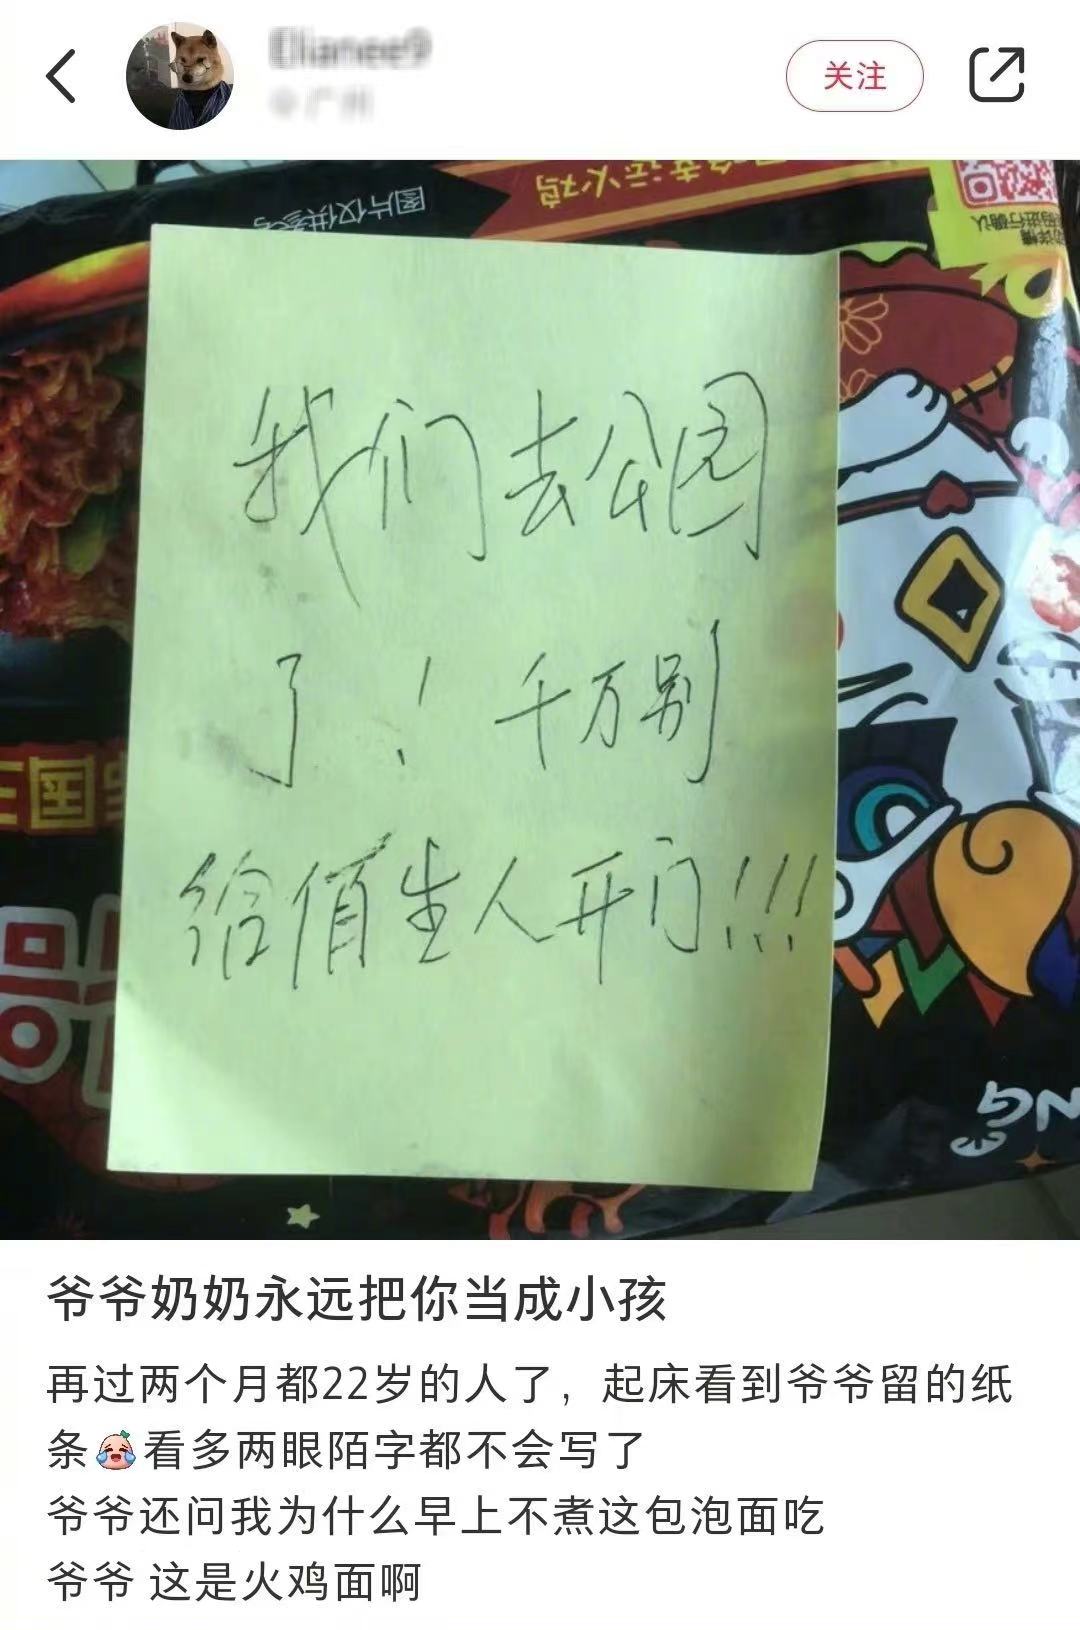 关注
图片仅供参考
幸运火鸡
三国
我们去公园
了！千万别
给佰生人开门!!!
爷爷奶奶永远把你当成小孩
再过两个月都22岁的人了，起床看到爷爷留的纸
条😭看多两眼陌字都不会写了
爷爷还问我为什么早上不煮这包泡面吃
爷爷 这是火鸡面啊